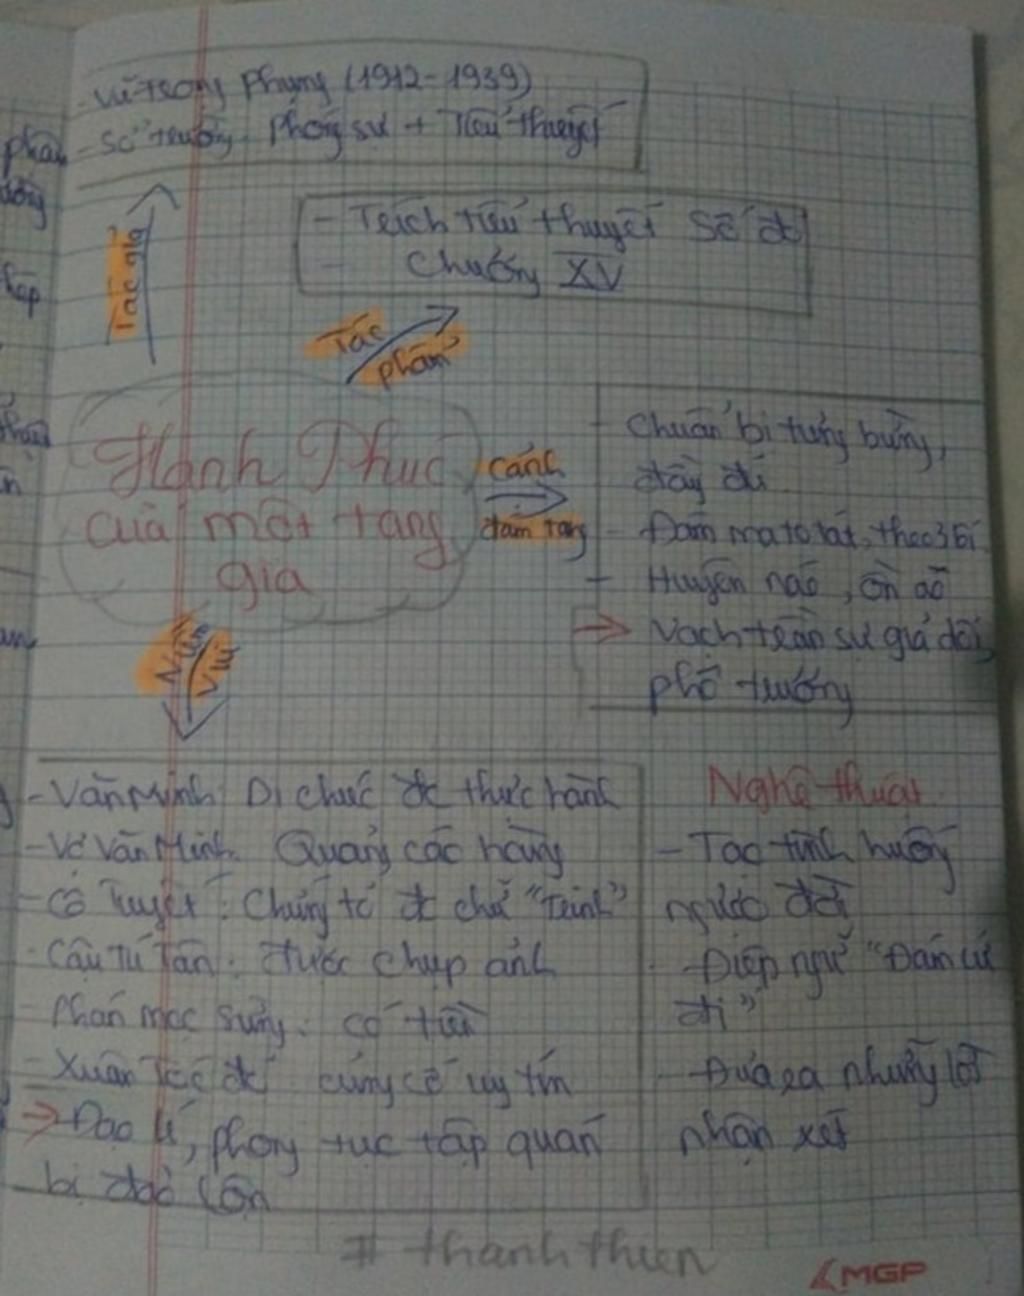 - Vũ Trọng Phụng (1912 - 1939)
- Sở trường: Phóng sự + Tiểu thuyết
Tác giả
- Trích tiểu thuyết Số đỏ
- Chương XV
Tác
phẩm
Hạnh Phúc
của một tang
gia
cảnh
đám tang
- Chuẩn bị tưng bừng,
đầy đủ
- Đám ma to tát, theo 3 lối
- Huyên náo, ồn ào
→ Vạch trần sự giả dối,
phô trương
Niềm
vui
- Văn Minh: Di chúc đc thực hành
- Vợ Văn Minh: Quảng cáo hàng
- Cô Tuyết: Chứng tỏ đc chữ "Trinh"
- Cậu Tú Tân: được chụp ảnh
- Phán mọc sừng: có tiền
- Xuân Tóc đỏ: củng cố uy tín
→ Đạo lí, phong tục tập quán
bị đảo lộn
Nghệ thuật
- Tạo tình huống
ngược đời
- Điệp ngữ "Đám cứ
đi"
- Đưa ra những lời
nhận xét
# thanhthien
MGP
phẩm